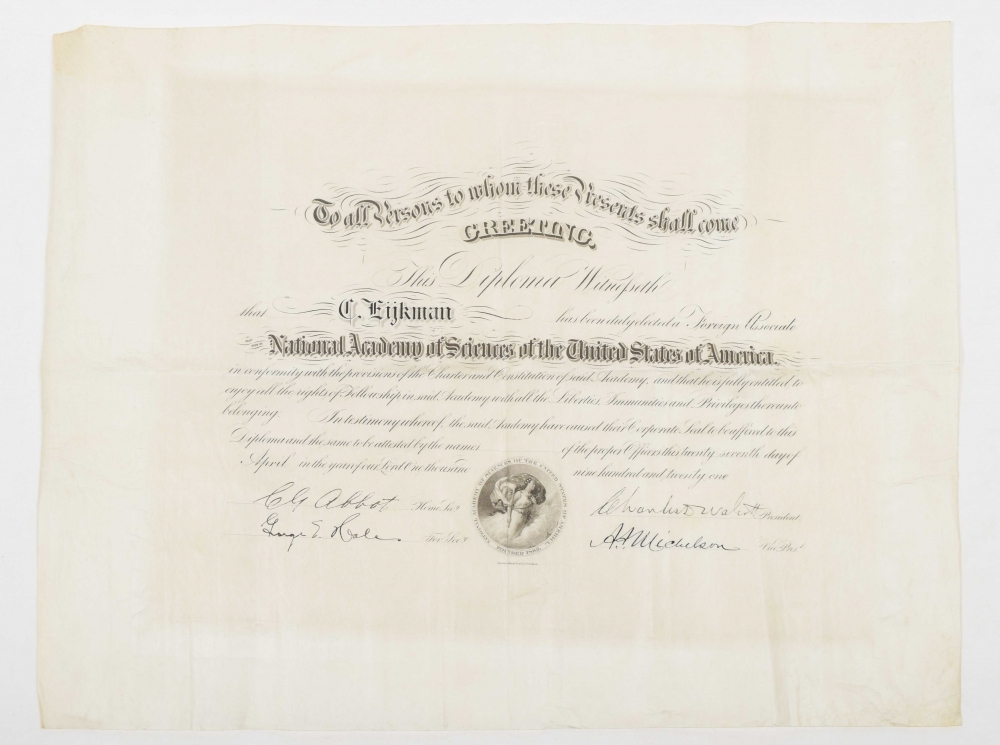 To all Persons to whom these Presents shall come
GREETING.
This Diploma Witnesseth
that C. Eijkman has been duly elected a Foreign Associate
National Academy of Sciences of the United States of America.
in conformity with the provisions of the Charter and Constitution of said Academy, and that he is fully entitled to
enjoy all the rights of Fellowship in said Academy with all the Liberties, Immunities and Privileges thereunto
belonging. In testimony whereof, the said Academy have caused their Corporate Seal to be affixed to this
Diploma and the same to be attested by the names of the proper Officers the twenty seventh day of
April in the year of our Lord One thousand nine hundred and twenty one
NATIONAL ACADEMY OF SCIENCES OF THE UNITED STATES OF AMERICA
FOUNDED 1863
C G Abbot Home Secy
Charles D Walcott President
George E. Hale For. Secy
A. A. Michelson Vice Prest